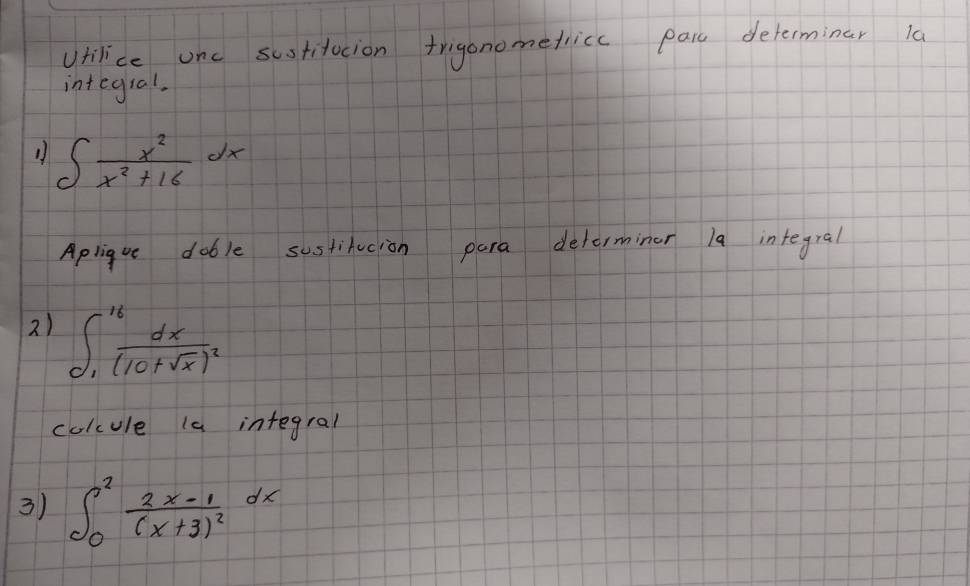 Utilice una sustitucion trigonometrica para determinar la
integral.
1) ∫ x²/(x² + 16) dx
Aplique doble sustitucion para determinar la integral
2) ∫₁¹⁶ dx/(10+√x)²
calcule la integral
3) ∫₀² (2x-1)/(x+3)² dx